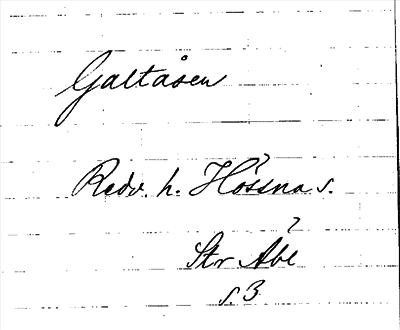 Galtåsen
Redv. h. Hössna s.
Str Åbe
s. 3